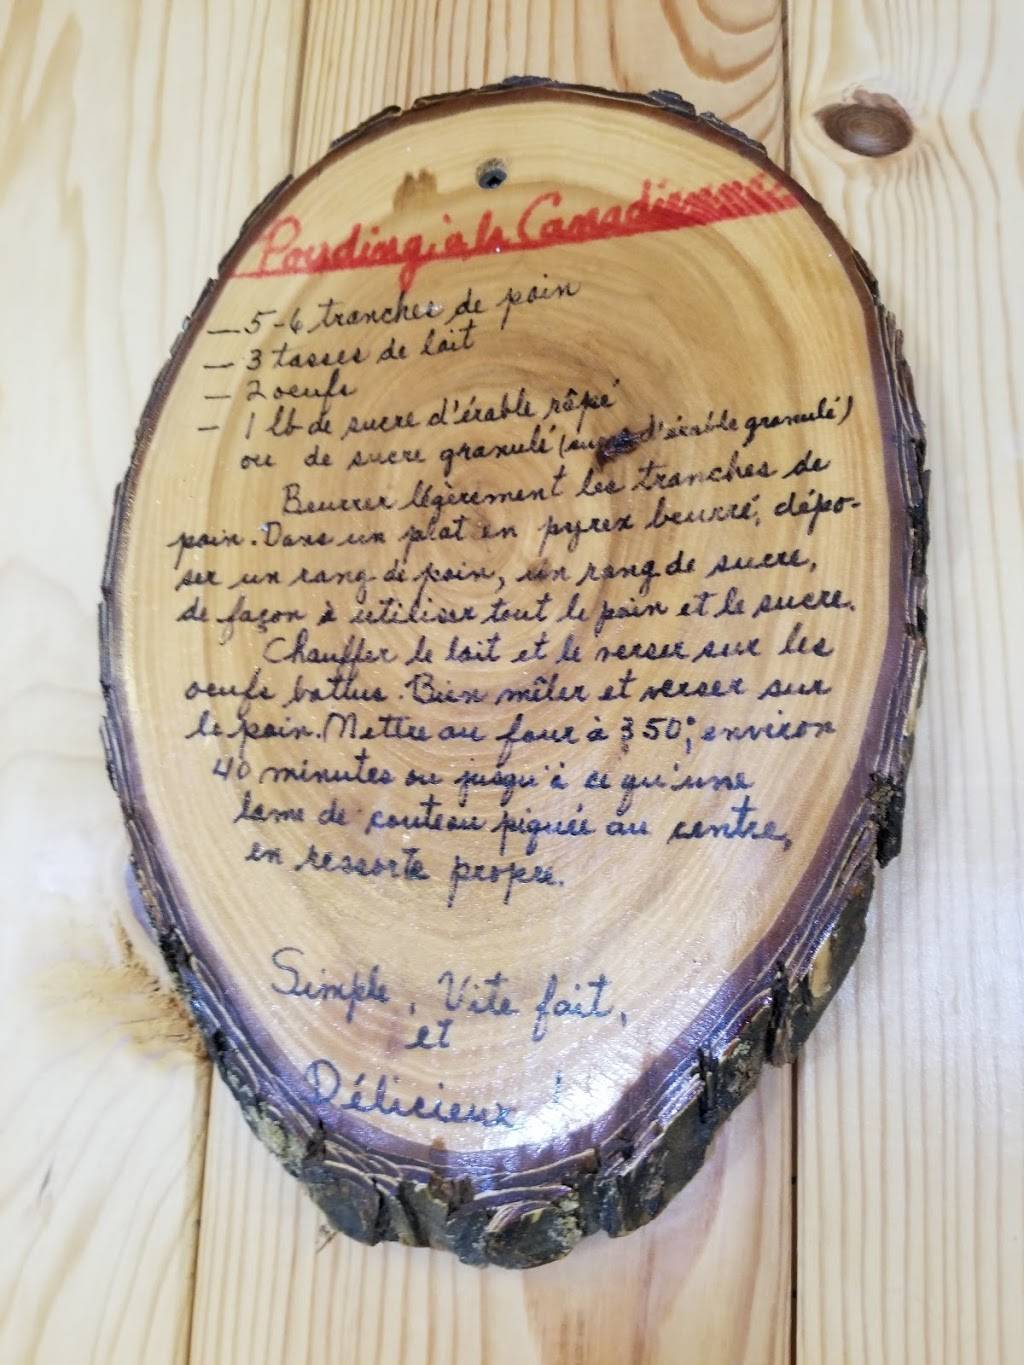 Pouding à la Canadienne
— 5-6 tranches de pain
— 3 tasses de lait
— 2 oeufs
— 1 lb de sucre d'érable râpé
ou de sucre granulé (sucre d'érable granulé)
Beurrer légèrement les tranches de
pain. Dans un plat en pyrex beurré, dépo-
ser un rang de pain, un rang de sucre,
de façon à utiliser tout le pain et le sucre.
Chauffer le lait et le verser sur les
oeufs battus. Bien mêler et verser sur
le pain. Mettre au four à 350°, environ
40 minutes ou jusqu'à ce qu'une
lame de couteau piquée au centre,
en ressorte propre.
Simple, Vite fait,
et
Délicieux !